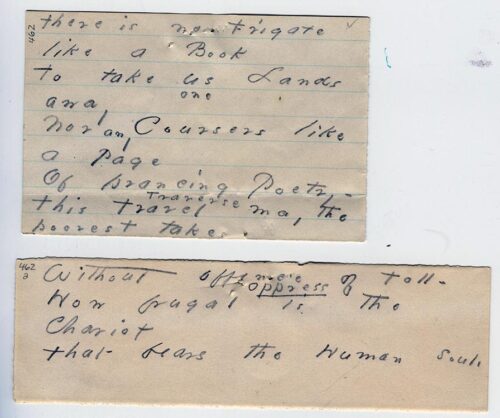 462
there is no Frigate
like a Book
To take us Lands
one
awa,
Nor an, Coursers like
a Page
Of prancing Poetry -
Traverse
this travel ma, the
poorest take
462
a
Without offense of toll -
oppress
How frugal is the
Chariot
that bears the Human soul.